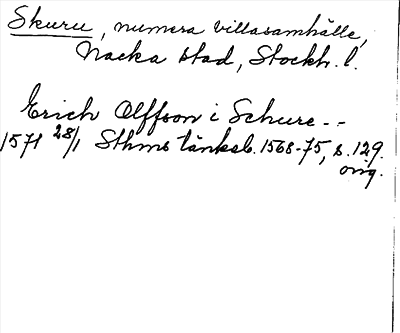 Skuru, numera villasamhälle,
Nacka stad, Stockh. l.
Erich Olffson i Schure --
1571 28/1 Sthms tänkeb. 1568-75, s. 129.
orig.